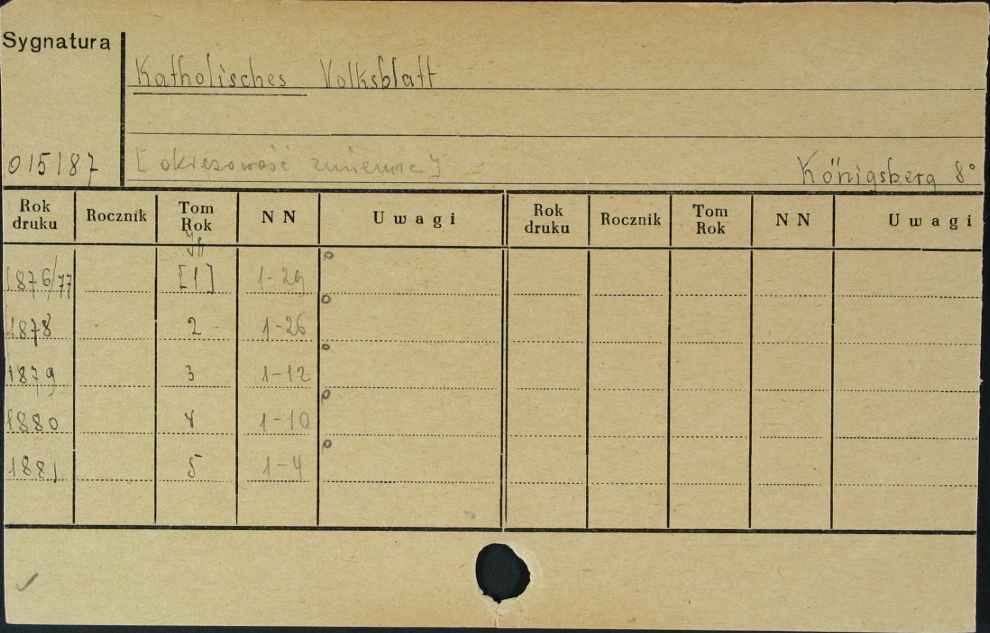 Sygnatura
Katholisches Volksblatt
015187 [okresowość zmienna] Königsberg 8°
Rok druku Rocznik Tom Rok NN Uwagi Rok druku Rocznik Tom Rok NN Uwagi
Jg
1876/77 [1] 1-29
1878 2 1-26
1879 3 1-12
1880 4 1-10
1881 5 1-4